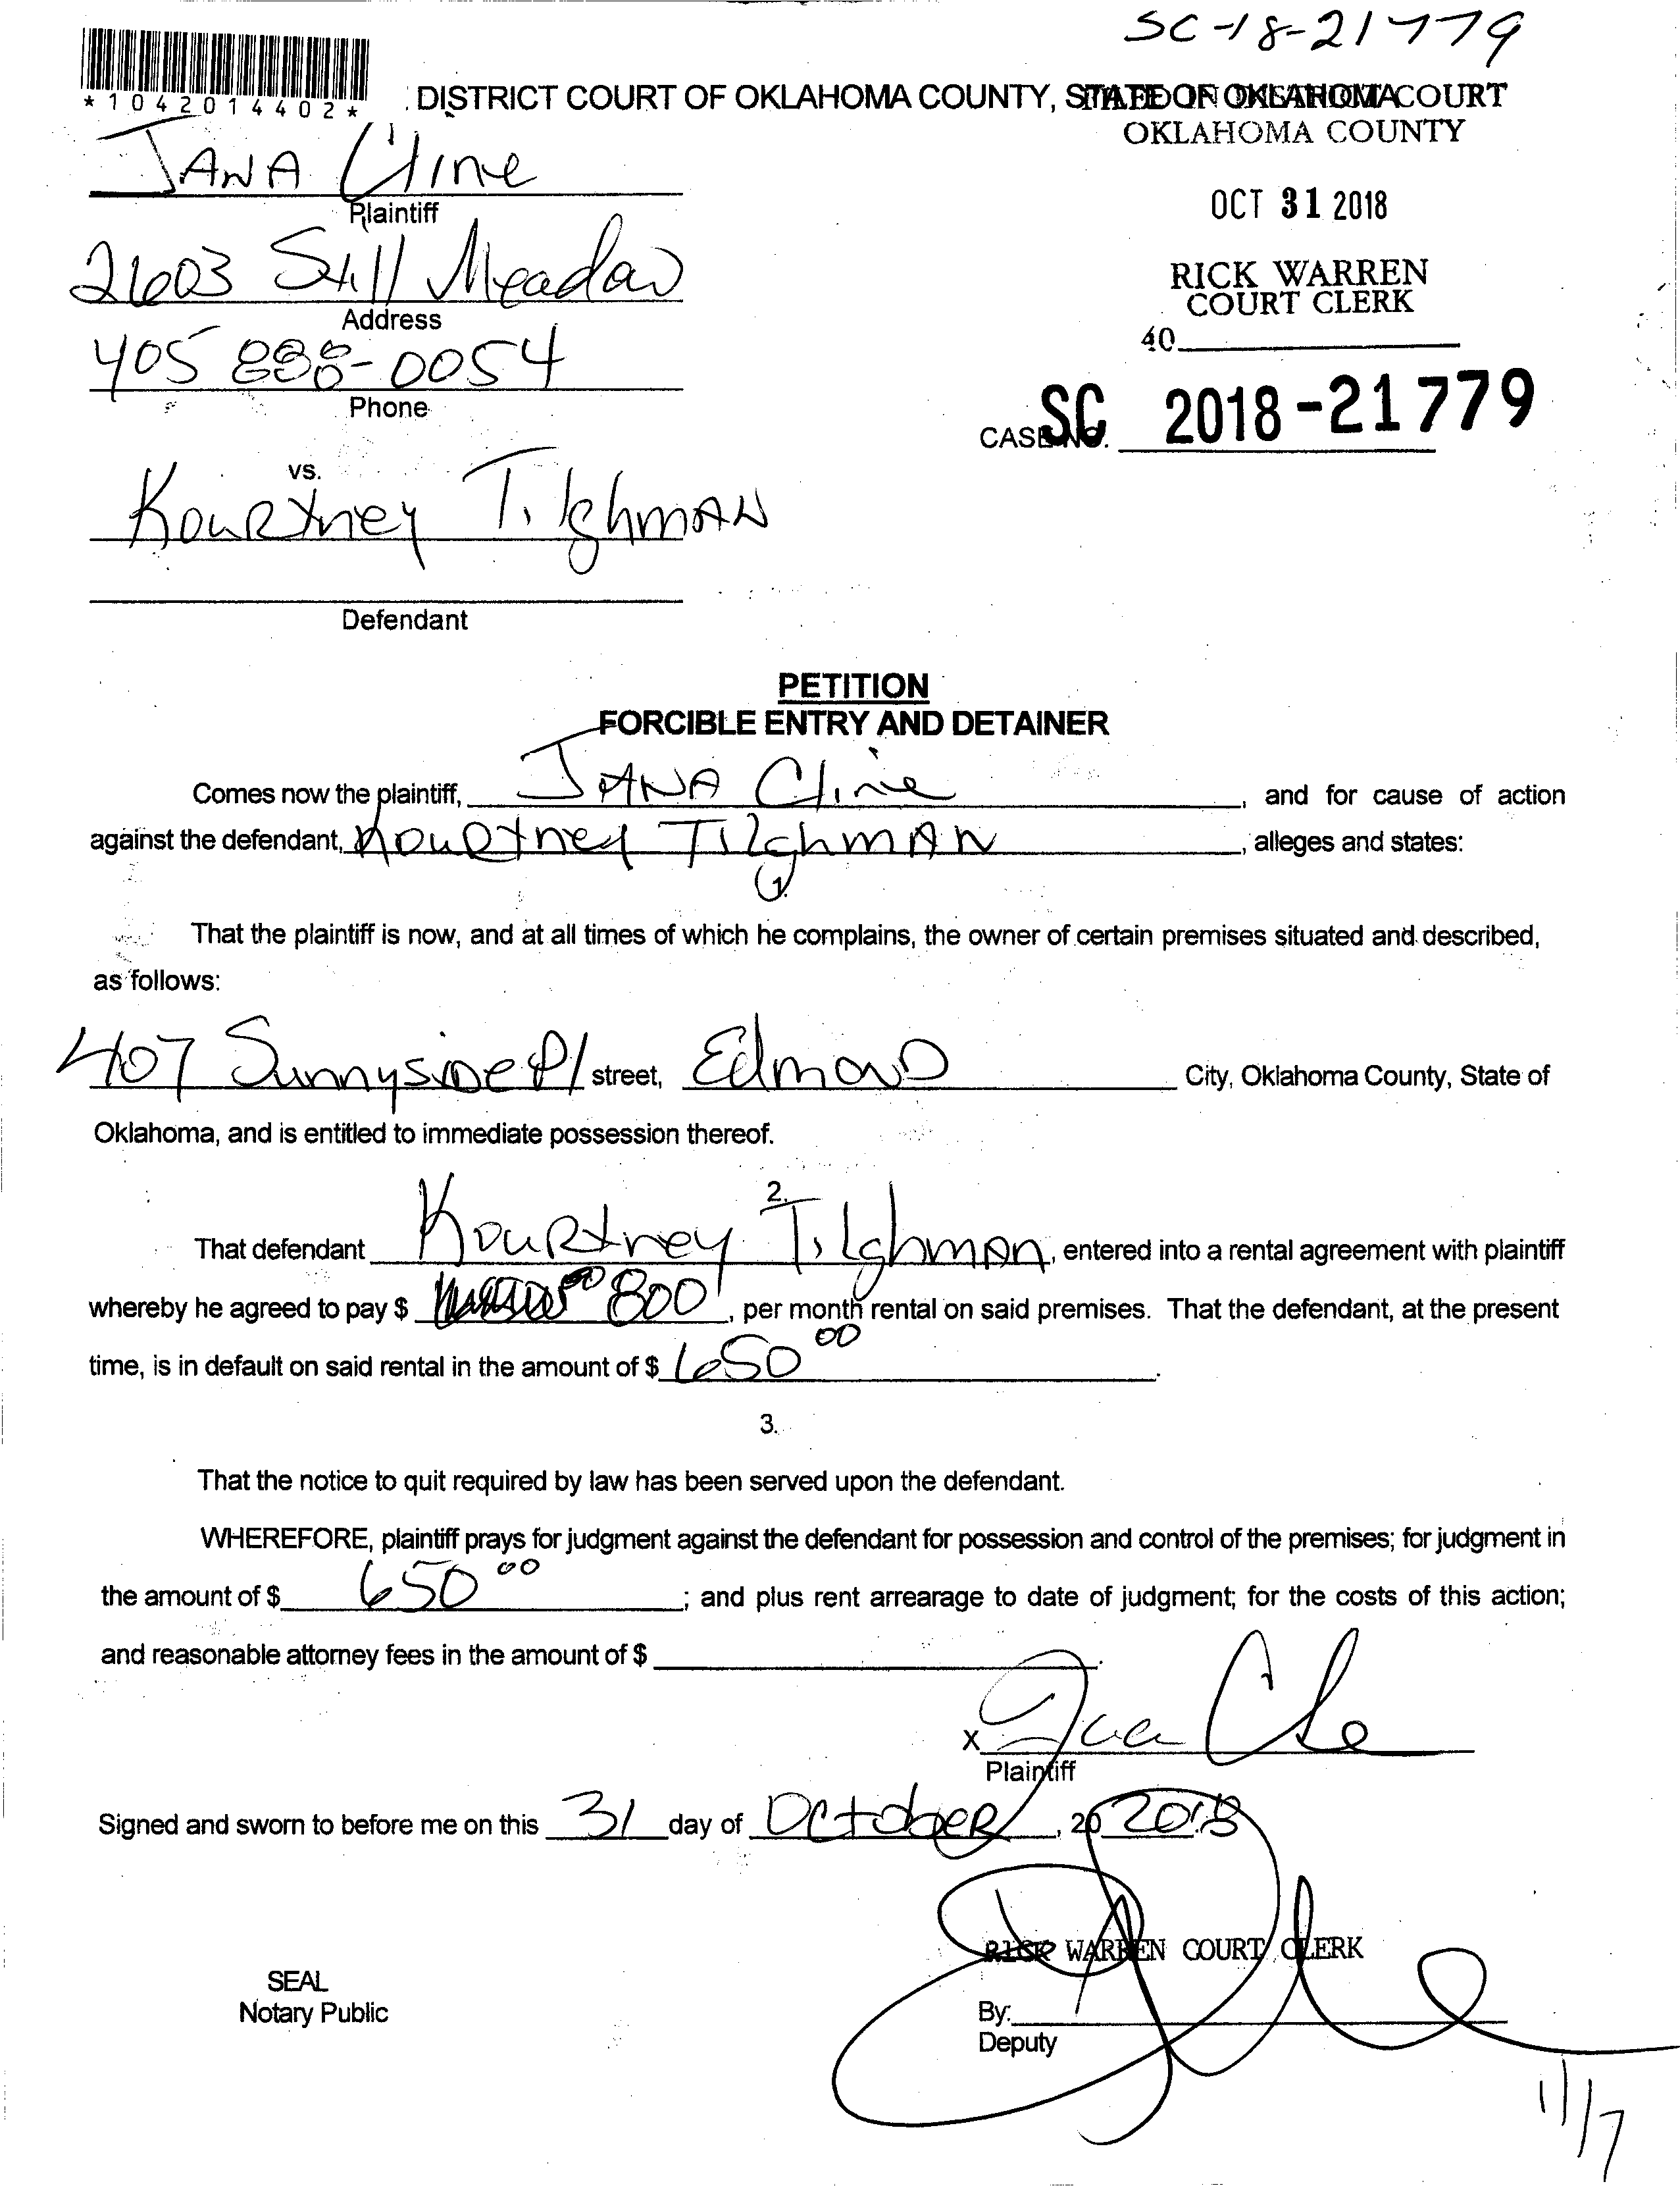 SC-18-21779
*1042014402*
DISTRICT COURT OF OKLAHOMA COUNTY, STATE OF OKLAHOMA
FILED IN DISTRICT COURT
OKLAHOMA COUNTY
JANA Cline
Plaintiff
OCT 31 2018
2603 Still Meadow
Address
RICK WARREN
COURT CLERK
405 888-0054
Phone
40
CASE NO. SC 2018-21779
vs.
KouRtney TilghmAN
Defendant
PETITION
FORCIBLE ENTRY AND DETAINER
Comes now the plaintiff, JANA Cline, and for cause of action
against the defendant, KouRtney TilghmAN, alleges and states:
1.
That the plaintiff is now, and at all times of which he complains, the owner of certain premises situated and described,
as follows:
407 SunnysiDe Pl street, EdmonD City, Oklahoma County, State of
Oklahoma, and is entitled to immediate possession thereof.
2.
That defendant KouRtney TilghmAn, entered into a rental agreement with plaintiff
whereby he agreed to pay $ 800, per month rental on said premises. That the defendant, at the present
time, is in default on said rental in the amount of $ 650 00.
3.
That the notice to quit required by law has been served upon the defendant.
WHEREFORE, plaintiff prays for judgment against the defendant for possession and control of the premises; for judgment in
the amount of $ 650 00; and plus rent arrearage to date of judgment; for the costs of this action;
and reasonable attorney fees in the amount of $
X
Plaintiff
Signed and sworn to before me on this 31 day of OctobeR, 20 2018
RICK WARREN COURT CLERK
SEAL
Notary Public
By:
Deputy
11/7